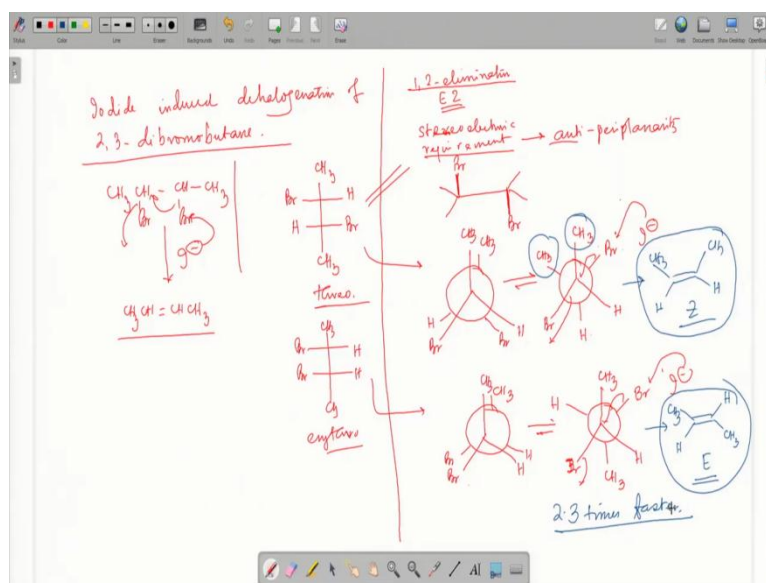 Stylus
Color
Line
Eraser
Backgrounds
Undo
Redo
Pages
Previous
Next
Erase
Board
Web
Documents
Show Desktop
OpenBoard
Iodide induced dehalogenation of
2,3-dibromobutane.
CH3 CH - CH-CH3
Br Br
I⊖
CH3CH=CHCH3
CH3
Br H
H Br
CH3
threo.
CH3
Br H
Br H
CH3
erythro
1,2-elimination
E2
stereoelectronic
requirement → anti-periplanarity
Br
Br
CH3 CH3
H H
Br Br
CH3 CH3 Br I⊖
Br H
H
CH3 CH3
H H
Z
CH3 CH3
Br H
Br H
CH3 Br I⊖
H
Br H
CH3
CH3 H
H CH3
E
2.3 times faster.